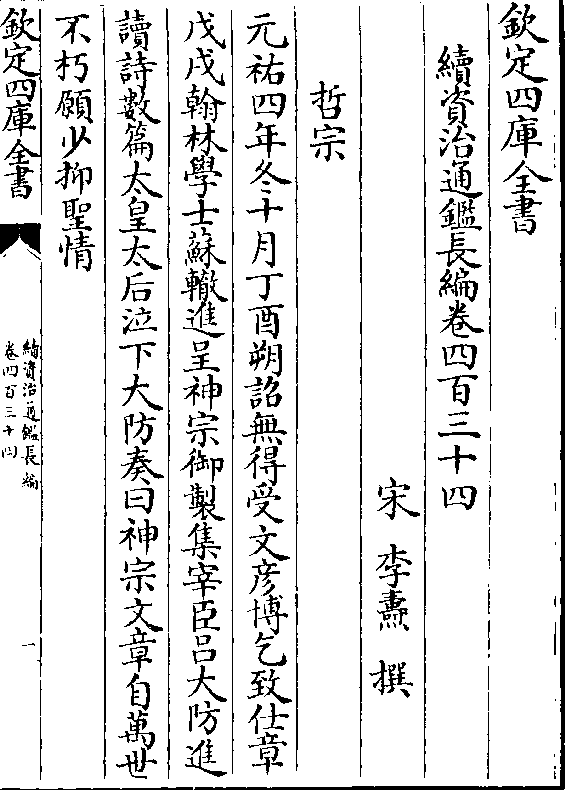 欽定四庫全書
續資治通鑑長編卷四百三十四
宋 李燾 撰
哲宗
元祐四年冬十月丁酉朔詔無得受文彦博乞致仕章
戊戌翰林學士蘇轍進呈神宗御製集宰臣吕大防進
讀詩數篇太皇太后泣下大防奏曰神宗文章自萬世
不朽願少抑聖情
欽定四庫全書
續資治通鑑長編
卷四百三十四
一